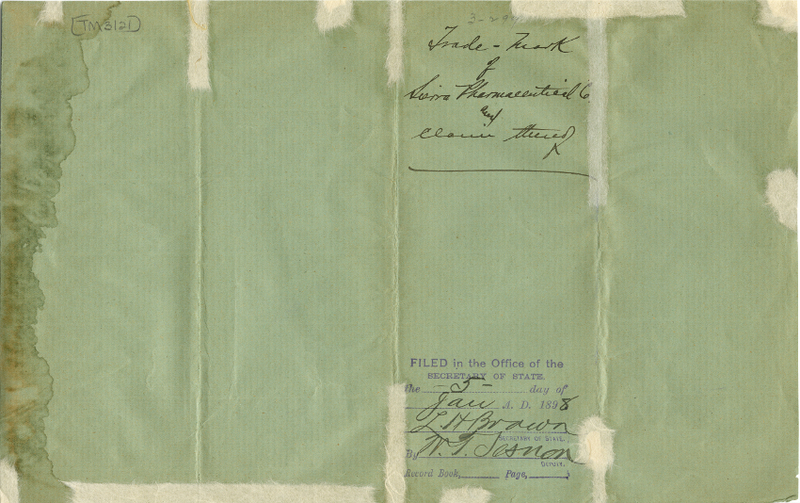 TM3121
Trade-Mark
of
Sierra Pharmaceutical Co
and
Claim thereof
FILED in the Office of the
SECRETARY OF STATE.
the -5- day of
Jan A. D. 1898
L. H. Brown
SECRETARY OF STATE.
By W. T. Sesnon
DEPUTY.
Record Book, Page,